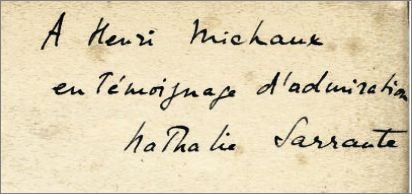 A Henri Michaux
en témoignage d'admiration
Nathalie Sarraute